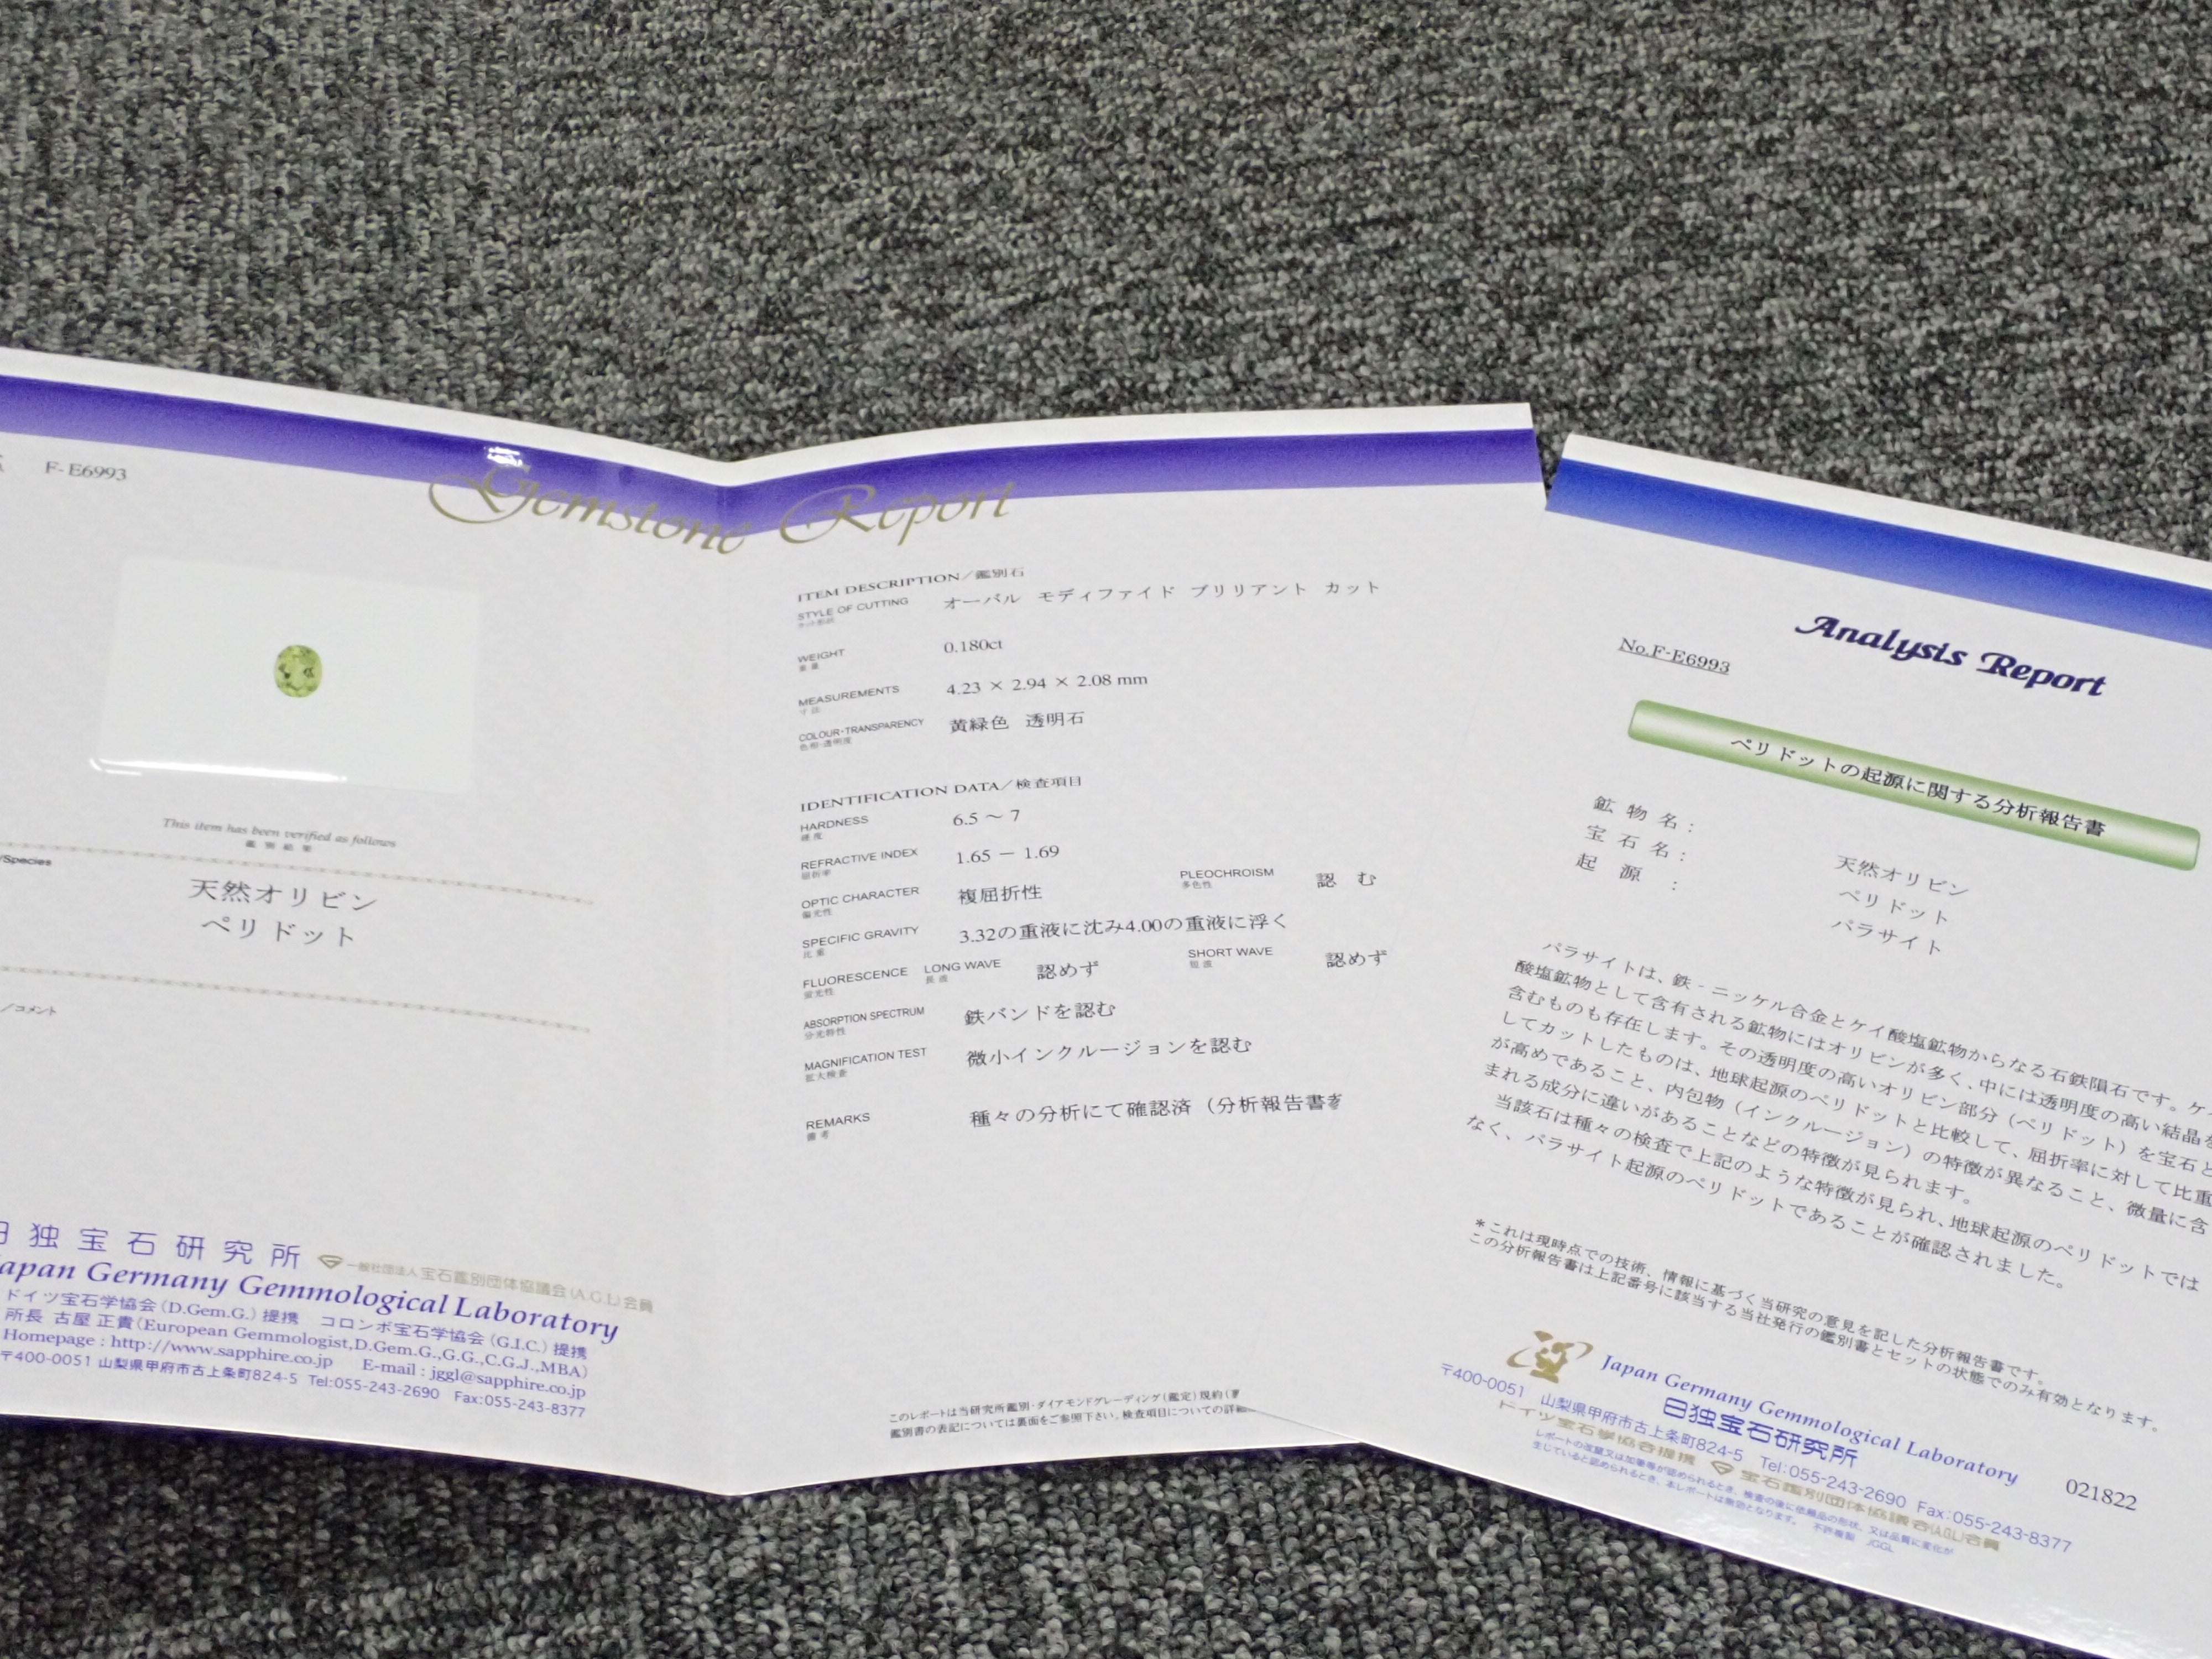 F-E6993
Gemstone Report
This item has been verified as follows
鑑別結果
/Species
天然オリビン
ペリドット
/コメント
日独宝石研究所
一般社団法人 宝石鑑別団体協議会(A.G.L)会員
Japan Germany Gemmological Laboratory
ドイツ宝石学協会(D.Gem.G.)提携 コロンボ宝石学協会(G.I.C.)提携
所長 古屋 正貴(European Gemmologist,D.Gem.G.,G.G.,C.G.J.,MBA)
Homepage : http://www.sapphire.co.jp E-mail : jggl@sapphire.co.jp
〒400-0051 山梨県甲府市古上条町824-5 Tel:055-243-2690 Fax:055-243-8377
ITEM DESCRIPTION/鑑別石
STYLE OF CUTTING オーバル モディファイド ブリリアント カット
カット形状
WEIGHT 0.180ct
重量
MEASUREMENTS 4.23 × 2.94 × 2.08 mm
寸法
COLOUR・TRANSPARENCY 黄緑色 透明石
色相・透明度
IDENTIFICATION DATA/検査項目
HARDNESS 6.5 〜 7
硬度
REFRACTIVE INDEX 1.65 − 1.69
屈折率
OPTIC CHARACTER 複屈折性 PLEOCHROISM 認 む
偏光性 多色性
SPECIFIC GRAVITY 3.32の重液に沈み4.00の重液に浮く
比重
FLUORESCENCE LONG WAVE 認めず SHORT WAVE 認めず
蛍光性 長波 短波
ABSORPTION SPECTRUM 鉄バンドを認む
分光特性
MAGNIFICATION TEST 微小インクルージョンを認む
拡大検査
REMARKS 種々の分析にて確認済（分析報告書
備考
このレポートは当研究所鑑別・ダイアモンドグレーディング(鑑定)規約(
鑑別書の表記については裏面をご参照下さい。検査項目についての詳細
Analysis Report
No.F-E6993
ペリドットの起源に関する分析報告書
鉱物名： 天然オリビン
宝石名： ペリドット
起源： パラサイト
パラサイトは、鉄‐ニッケル合金とケイ酸塩鉱物からなる石鉄隕石です。ケイ
酸塩鉱物として含有される鉱物にはオリビンが多く、中には透明度の高い結晶を
含むものも存在します。その透明度の高いオリビン部分（ペリドット）を宝石と
してカットしたものは、地球起源のペリドットと比較して、屈折率に対して比重
が高めであること、内包物（インクルージョン）の特徴が異なること、微量に含
まれる成分に違いがあることなどの特徴が見られます。
当該石は種々の検査で上記のような特徴が見られ、地球起源のペリドットでは
なく、パラサイト起源のペリドットであることが確認されました。
＊これは現時点での技術、情報に基づく当研究の意見を記した分析報告書です。
この分析報告書は上記番号に該当する当社発行の鑑別書とセットの状態でのみ有効となります。
Japan Germany Gemmological Laboratory
日独宝石研究所
〒400-0051 山梨県甲府市古上条町824-5 Tel:055-243-2690 Fax:055-243-8377
ドイツ宝石学協会提携 宝石鑑別団体協議会(A.G.L)会員
レポートの改竄又は加筆等が認められるとき、検査の後に依頼品の形状、又は品質に変化が
生じていると認められるとき、本レポートは無効となります。 不許複製 JGGL
021822